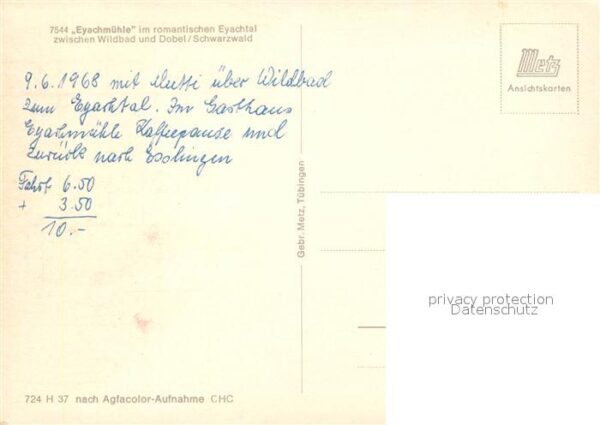 7544 „Eyachmühle" im romantischen Eyachtal
zwischen Wildbad und Dobel/Schwarzwald
9.6.1968 mit Mutti über Wildbad
zum Eyachtal. Im Gasthaus
Eyachmühle Kaffeepause und
zurück nach Esslingen
Fahrt 6.50
+ 3.50
10.-
Metz
Ansichtskarten
Gebr. Metz, Tübingen
privacy protection
Datenschutz
724 H 37 nach Agfacolor-Aufnahme CHC